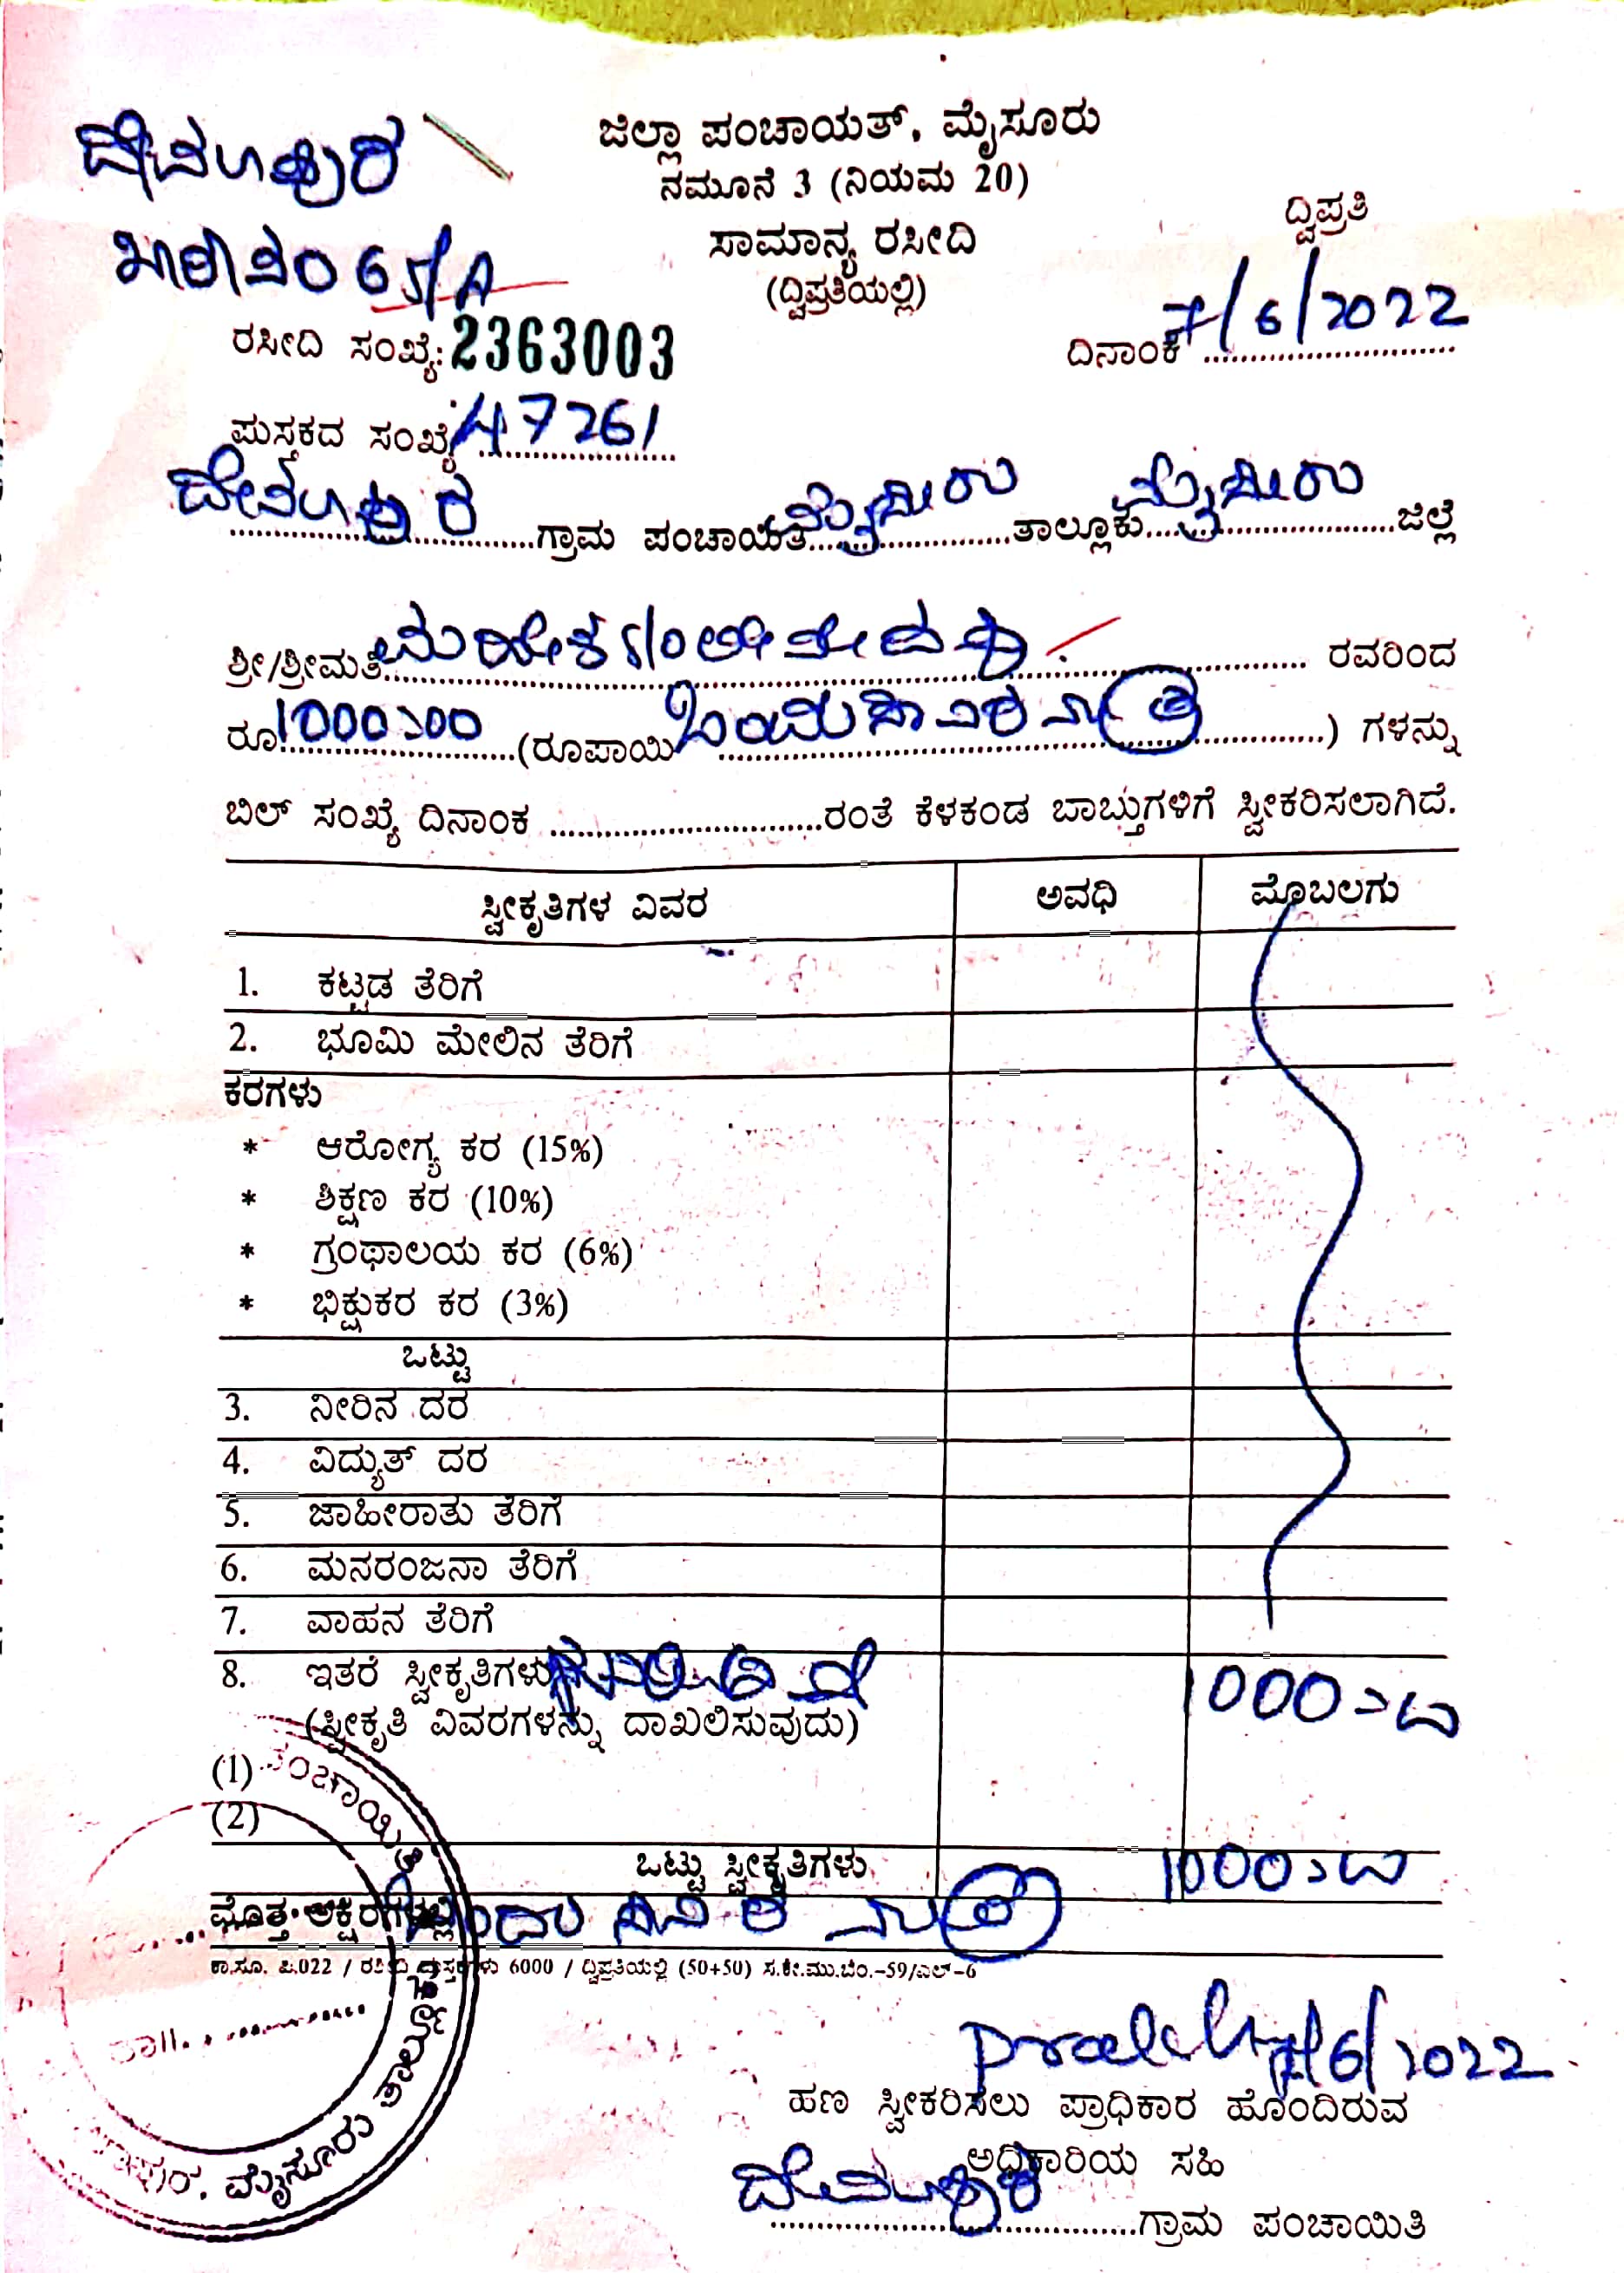 ಜಿಲ್ಲಾ ಪಂಚಾಯತ್, ಮೈಸೂರು
ನಮೂನೆ 3 (ನಿಯಮ 20)
ದ್ವಿಪ್ರತಿ
ಸಾಮಾನ್ಯ ರಸೀದಿ
(ದ್ವಿಪ್ರತಿಯಲ್ಲಿ)
65/A
ರಸೀದಿ ಸಂಖ್ಯೆ: 2363003
ದಿನಾಂಕ 7/6/2022
ಪುಸ್ತಕದ ಸಂಖ್ಯೆ 47261
ಗ್ರಾಮ ಪಂಚಾಯಿತಿ ಮೈಸೂರು ತಾಲ್ಲೂಕು ಮೈಸೂರು ಜಿಲ್ಲೆ
ಶ್ರೀ/ಶ್ರೀಮತಿ S/O ರವರಿಂದ
ರೂ. 1000=00 (ರೂಪಾಯಿ ಒಂದು ಸಾವಿರ ಮಾತ್ರ) ಗಳನ್ನು
ಬಿಲ್ ಸಂಖ್ಯೆ ದಿನಾಂಕ ರಂತೆ ಕೆಳಕಂಡ ಬಾಬ್ತುಗಳಿಗೆ ಸ್ವೀಕರಿಸಲಾಗಿದೆ.
ಸ್ವೀಕೃತಿಗಳ ವಿವರ ಅವಧಿ ಮೊಬಲಗು
1. ಕಟ್ಟಡ ತೆರಿಗೆ
2. ಭೂಮಿ ಮೇಲಿನ ತೆರಿಗೆ
ಕರಗಳು
* ಆರೋಗ್ಯ ಕರ (15%)
* ಶಿಕ್ಷಣ ಕರ (10%)
* ಗ್ರಂಥಾಲಯ ಕರ (6%)
* ಭಿಕ್ಷುಕರ ಕರ (3%)
ಒಟ್ಟು
3. ನೀರಿನ ದರ
4. ವಿದ್ಯುತ್ ದರ
5. ಜಾಹೀರಾತು ತೆರಿಗೆ
6. ಮನರಂಜನಾ ತೆರಿಗೆ
7. ವಾಹನ ತೆರಿಗೆ
8. ಇತರೆ ಸ್ವೀಕೃತಿಗಳು 1000=00
(ಸ್ವೀಕೃತಿ ವಿವರಗಳನ್ನು ದಾಖಲಿಸುವುದು)
(1)
(2)
ಒಟ್ಟು ಸ್ವೀಕೃತಿಗಳು 1000=00
ಮೊತ್ತ ಅಕ್ಷರಗಳಲ್ಲಿ ಒಂದು ಸಾವಿರ ಮಾತ್ರ
6000 / ದ್ವಿಪ್ರತಿಯಲ್ಲಿ (50+50) ಸ.ಕೇ.ಮು.ಬೆಂ.-59/ಎಲ್-6
7/6/2022
ಹಣ ಸ್ವೀಕರಿಸಲು ಪ್ರಾಧಿಕಾರ ಹೊಂದಿರುವ
ಅಧಿಕಾರಿಯ ಸಹಿ
ಗ್ರಾಮ ಪಂಚಾಯಿತಿ
ಮೈಸೂರು